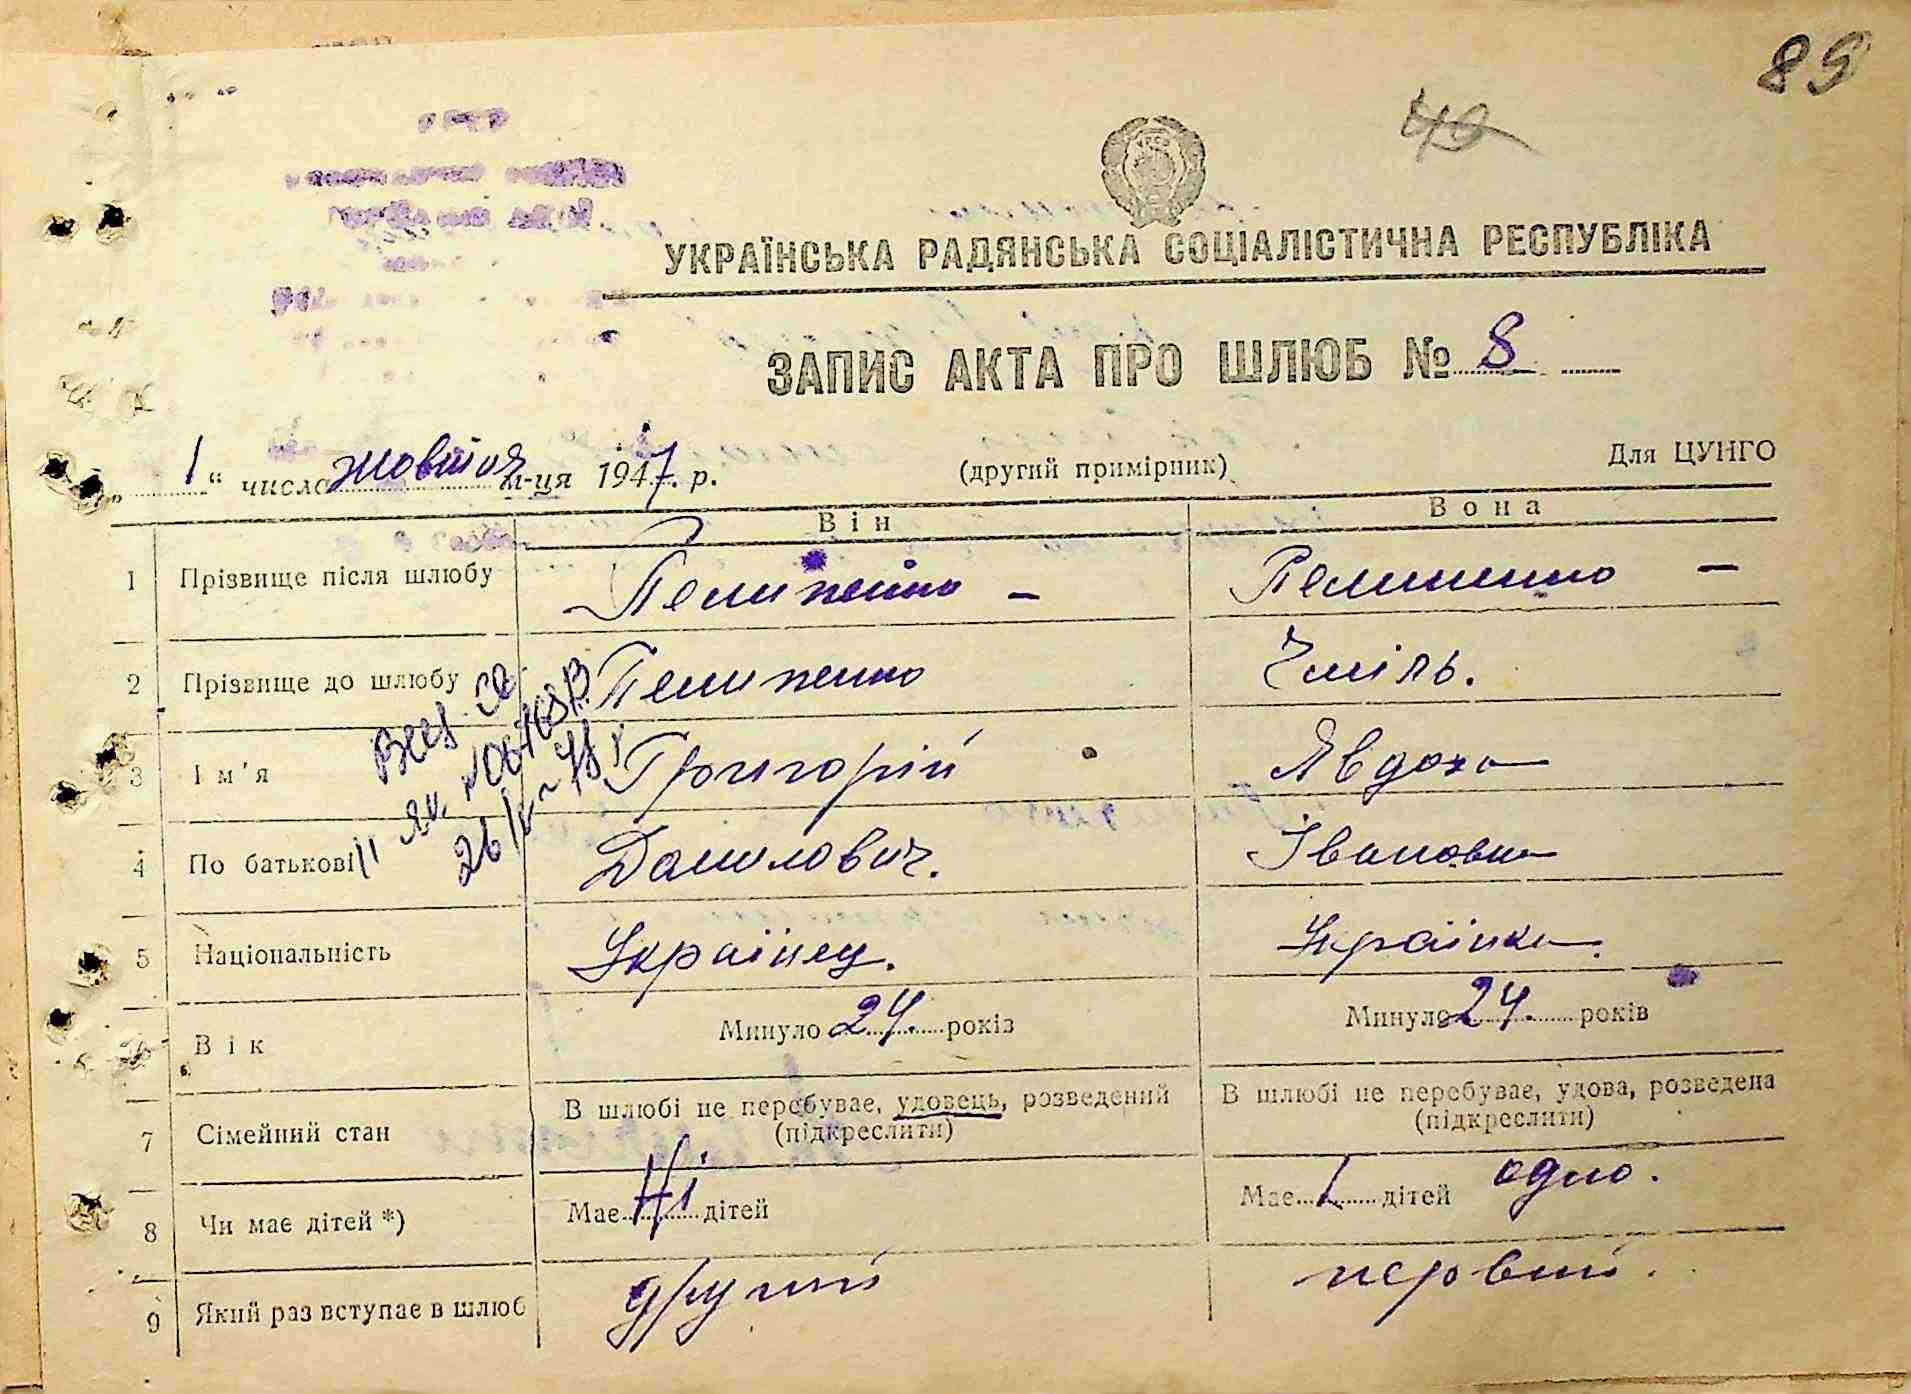 89
40
УКРАЇНСЬКА РАДЯНСЬКА СОЦІАЛІСТИЧНА РЕСПУБЛІКА
ЗАПИС АКТА ПРО ШЛЮБ № 8
„ 1 “ число жовтня м-ця 1947 р. (другий примірник) Для ЦУНГО
Він Вона
1 Прізвище після шлюбу Пелипенко – Пелипенко –
2 Прізвище до шлюбу Пелипенко Чміль.
3 Ім'я Григорій Явдоха
4 По батькові Данилович. Івановна
5 Національність Українец. Українка.
6 Вік Минуло 24. років Минуло 24. років
7 Сімейний стан В шлюбі не перебуває, удовець, розведений (підкреслити) В шлюбі не перебуває, удова, розведена (підкреслити)
8 Чи має дітей *) Має Ні дітей Має 1 дітей одно.
9 Який раз вступає в шлюб другий первий.